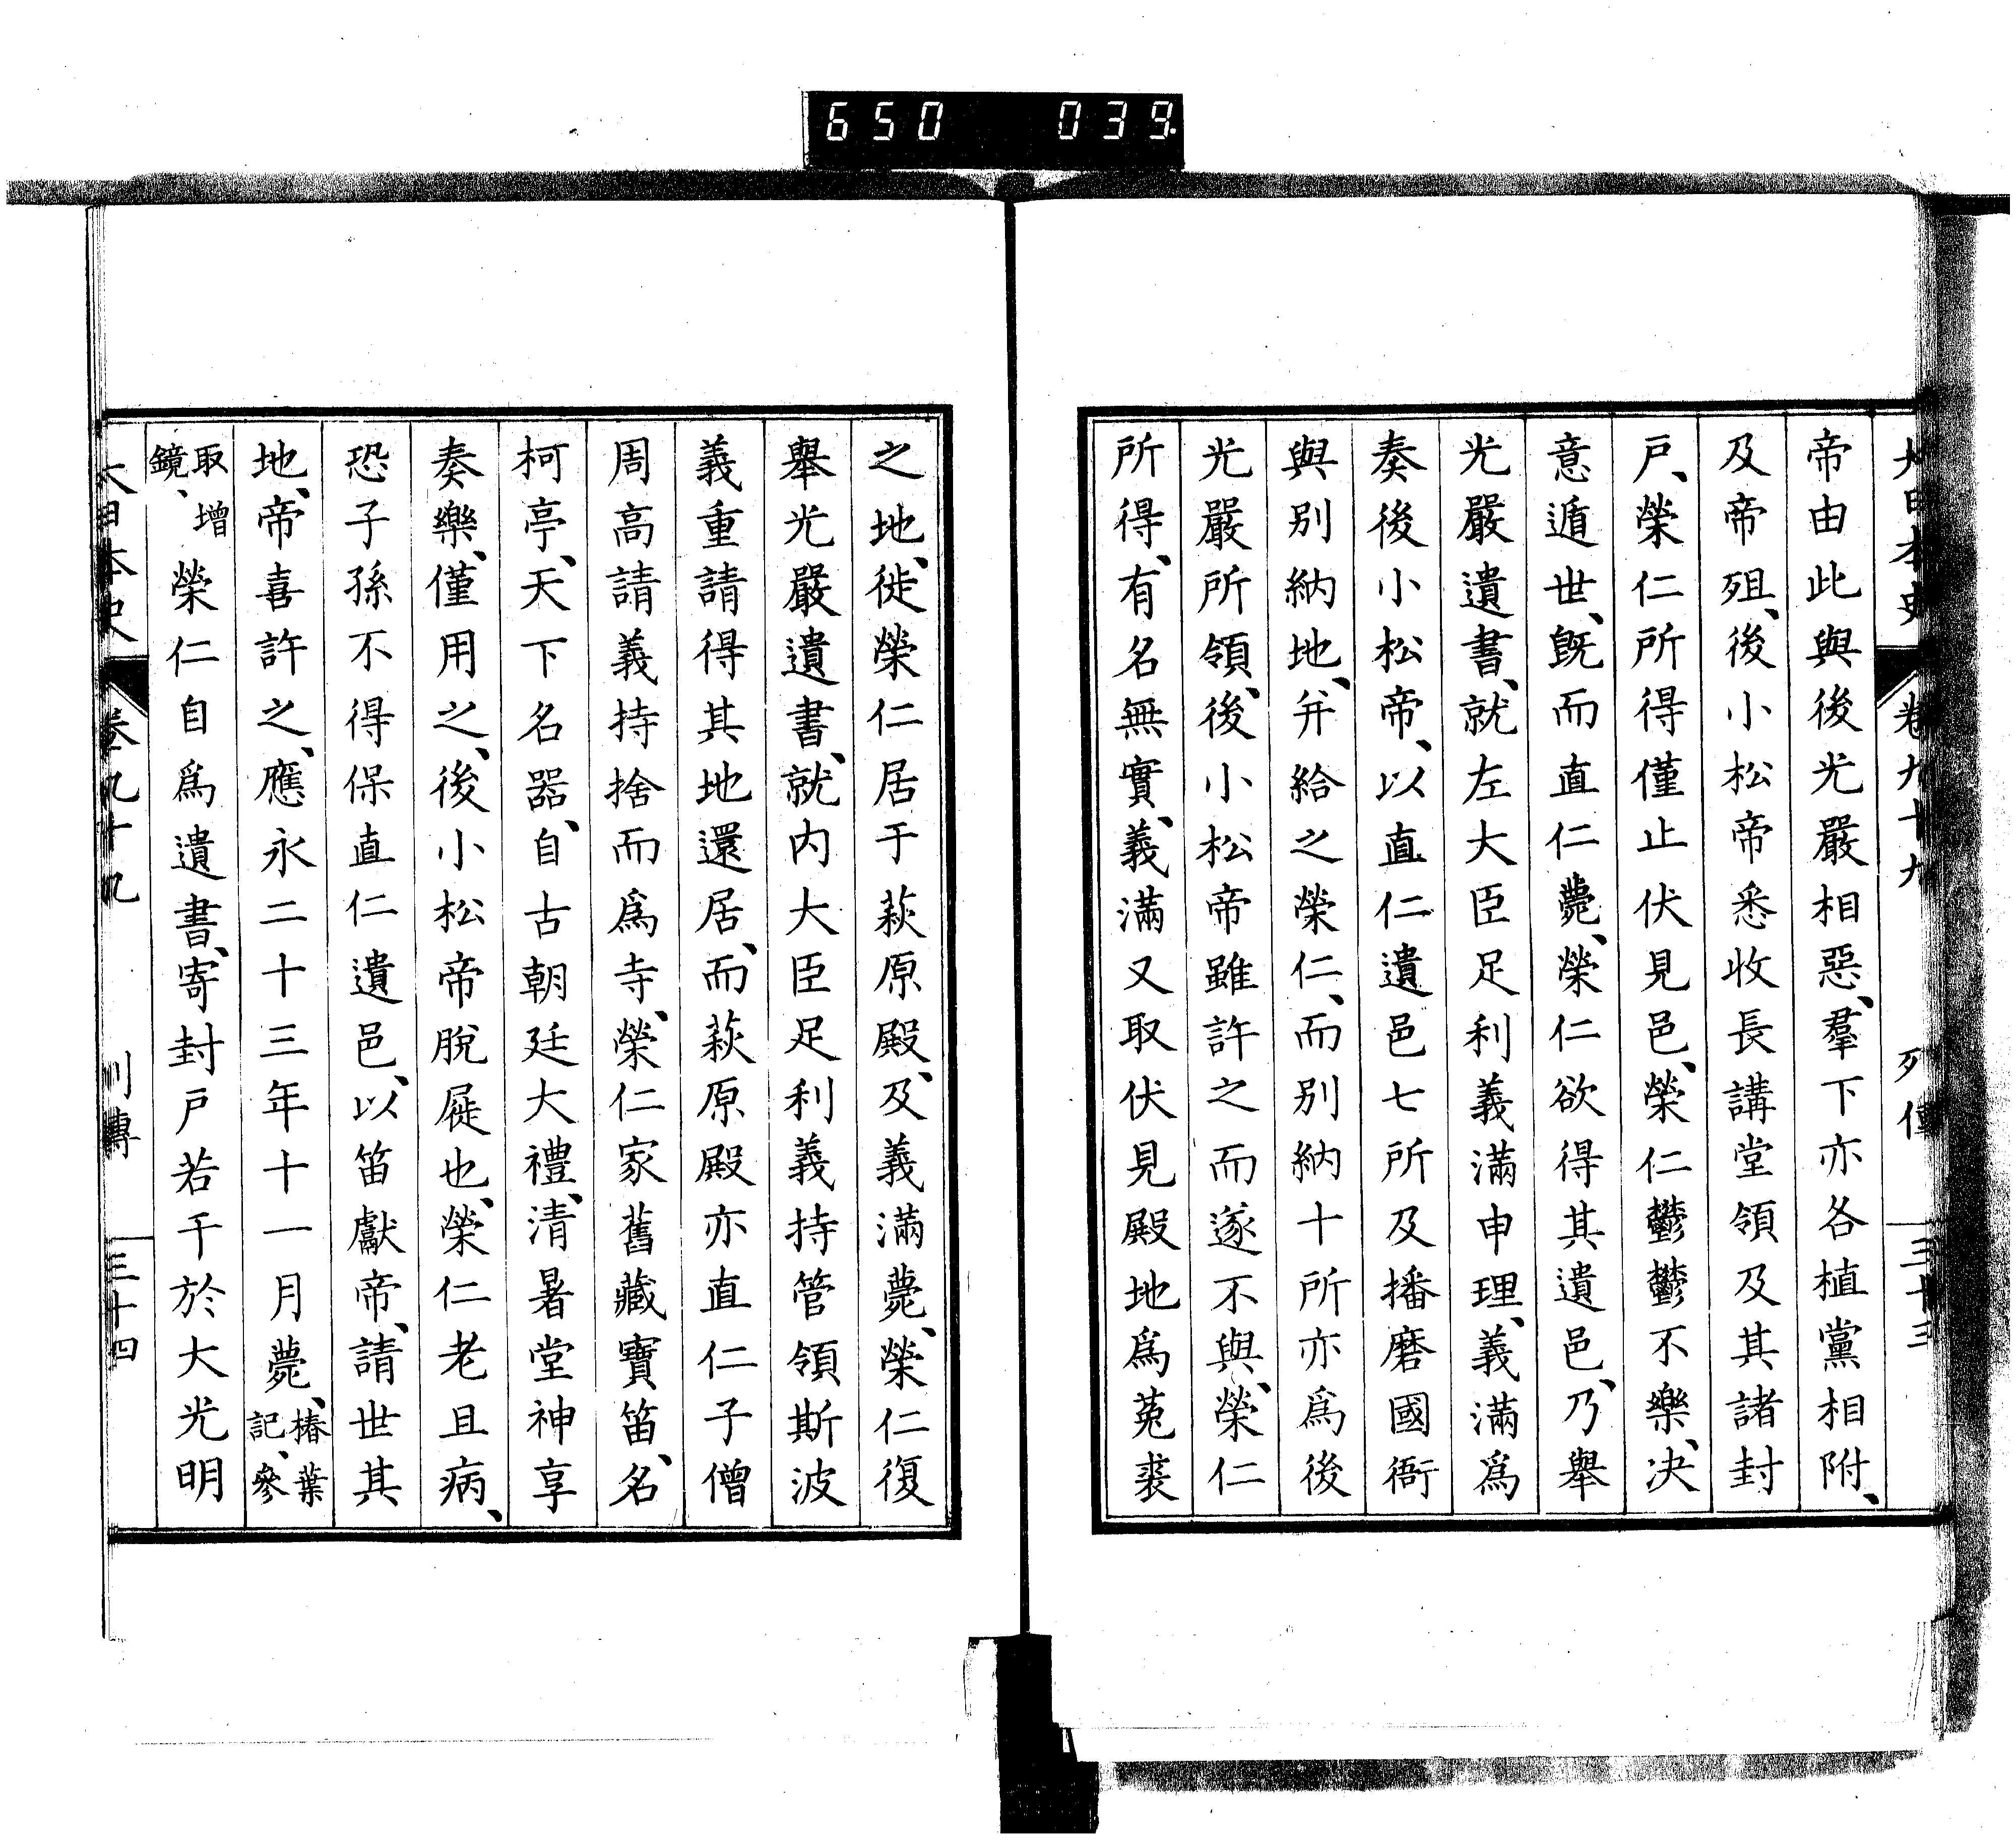 650 039
大日本史 卷九十九 列傳 三十三
帝由此與後光嚴相惡、羣下亦各植黨相附、
及帝殂、後小松帝悉收長講堂領及其諸封
戸、榮仁所得僅止伏見邑、榮仁鬱鬱不樂、決
意遁世、旣而直仁薨、榮仁欲得其遺邑、乃舉
光嚴遺書、就左大臣足利義滿申理、義滿爲
奏後小松帝、以直仁遺邑七所及播磨國衙
與別納地、幷給之榮仁、而別納十所亦爲後
光嚴所領、後小松帝雖許之而遂不與、榮仁
所得、有名無實、義滿又取伏見殿地爲菟裘
之地、徙榮仁居于萩原殿、及義滿薨、榮仁復
舉光嚴遺書、就内大臣足利義持管領斯波
義重請得其地還居、而萩原殿亦直仁子僧
周高請義持捨而爲寺、榮仁家舊藏寶笛、名
柯亭、天下名器、自古朝廷大禮、清暑堂神享
奏樂、僅用之、後小松帝脫屣也、榮仁老且病、
恐子孫不得保直仁遺邑、以笛獻帝、請世其
地、帝喜許之、應永二十三年十一月薨、椿葉記、參
取增鏡、榮仁自爲遺書、寄封戸若干於大光明
大日本史 卷九十九 列傳 三十四